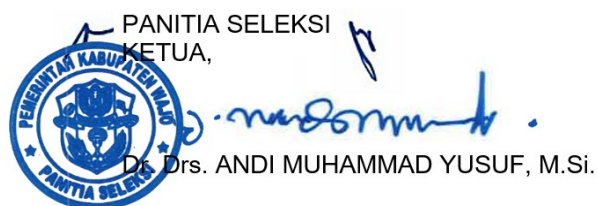 PANITIA SELEKSI
KETUA,
PEMERINTAH KABUPATEN WAJO
PANITIA SELEKSI
Dr. Drs. ANDI MUHAMMAD YUSUF, M.Si.